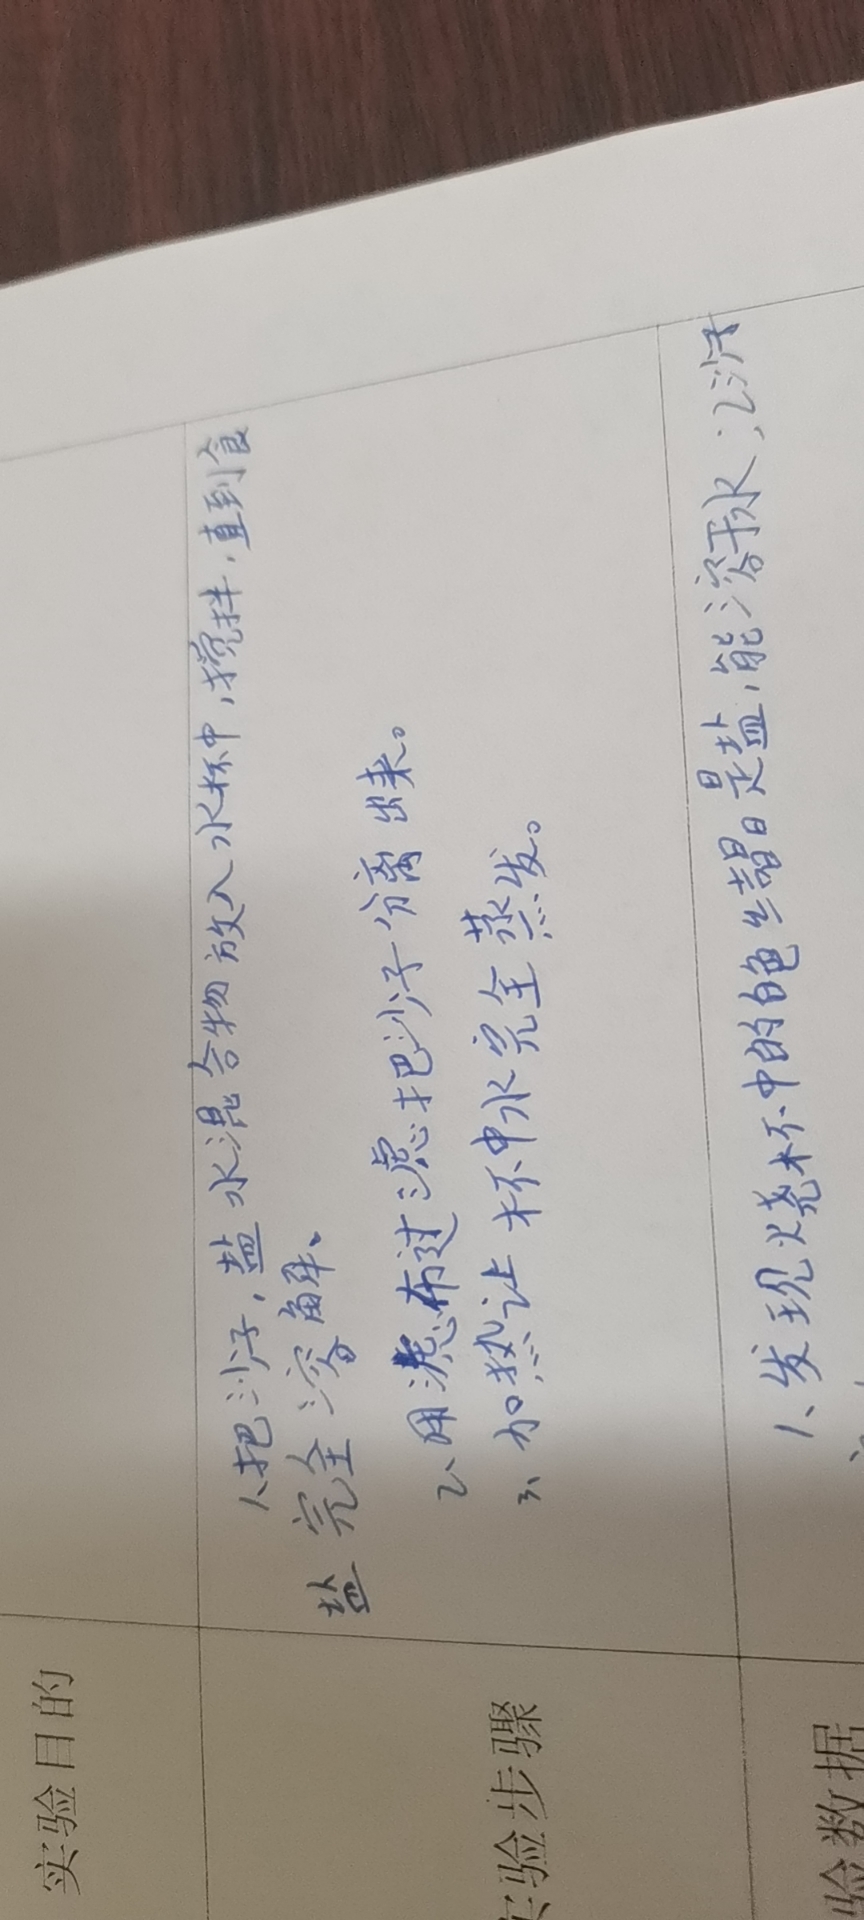 实验目的
1、把沙子,盐水混合物放入水杯中,搅拌,直到食
盐完全溶解、
2、用滤布过滤把沙子分离出来。
实验步骤
3、加热让杯中水完全蒸发。
1、发现烧杯中的白色结晶是盐,能溶于水;
验数据